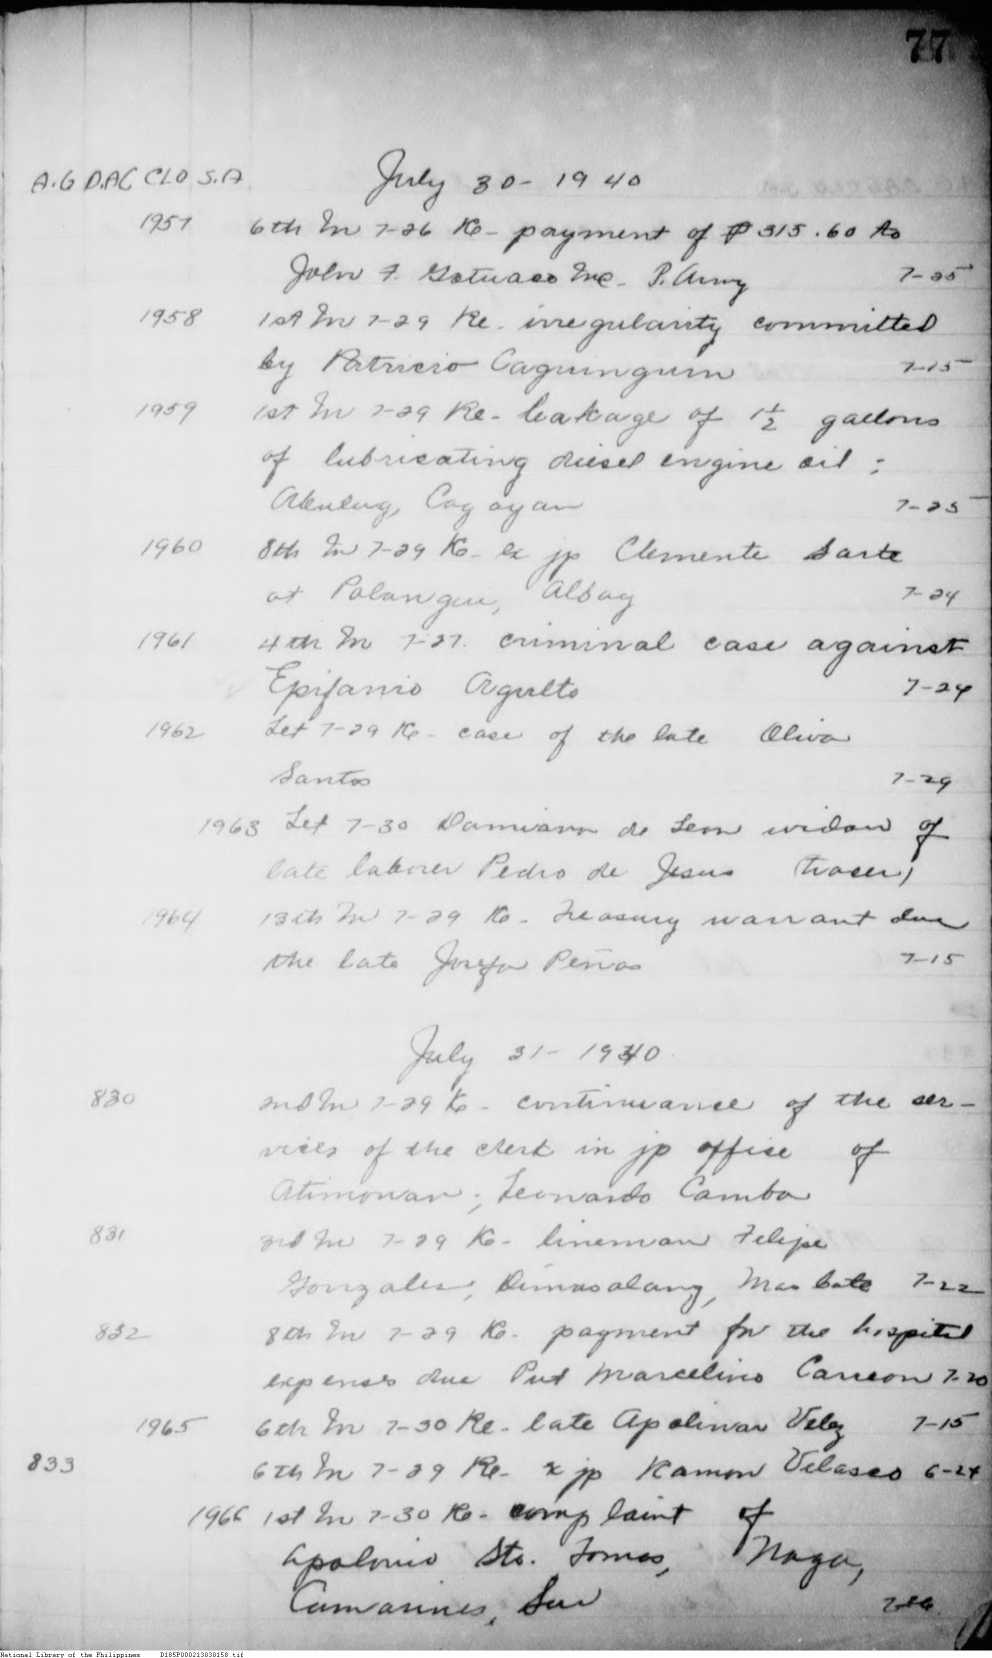 77
A.G D.AC CLO S.A. July 30- 1940
1957 6th In 7-26 Re- payment of ₱315.60 to
John F. Gotuaco Inc. P. Army 7-25
1958 1st In 7-29 Re. irregularity committed
by Patricio Caguingum 7-15
1959 1st In 7-29 Re- leakage of 1 1/2 gallons
of lubricating diesel engine oil ;
Abulug, Cagayan 7-25
1960 8th In 7-29 Re- ex jp Clemente Sarte
at Polangui, Albay 7-24
1961 4th In 7-27. criminal case against
Epifanio Agulto 7-24
1962 Let 7-29 Re- case of the late Oliva
Santos 7-29
1963 Let 7-30 Damiana de Leon widow of
late laborer Pedro de Jesus (tracer)
1964 13th In 7-29 Re- Treasury warrant due
the late Josefa Peñas 7-15
July 31- 1940
830 2nd In 7-29 Re- continuance of the ser-
vices of the clerk in jp office of
Atimonan ; Leonardo Camba
831 3rd In 7-29 Re- lineman Felipe
Gonzales, Dimasalang, Masbate 7-22
832 8th In 7-29 Re- payment for the hospital
expenses due Pvt Marcelino Carreon 7-20
1965 6th In 7-30 Re- late Apolinar Velez 7-15
833 6th In 7-29 Re- x jp Ramon Velasco 6-24
1966 1st In 7-30 Re- complaint of
Apolonio Sto. Tomas, Naga,
Camarines, Sur
National Library of the Philippines D185P000213838158.tif